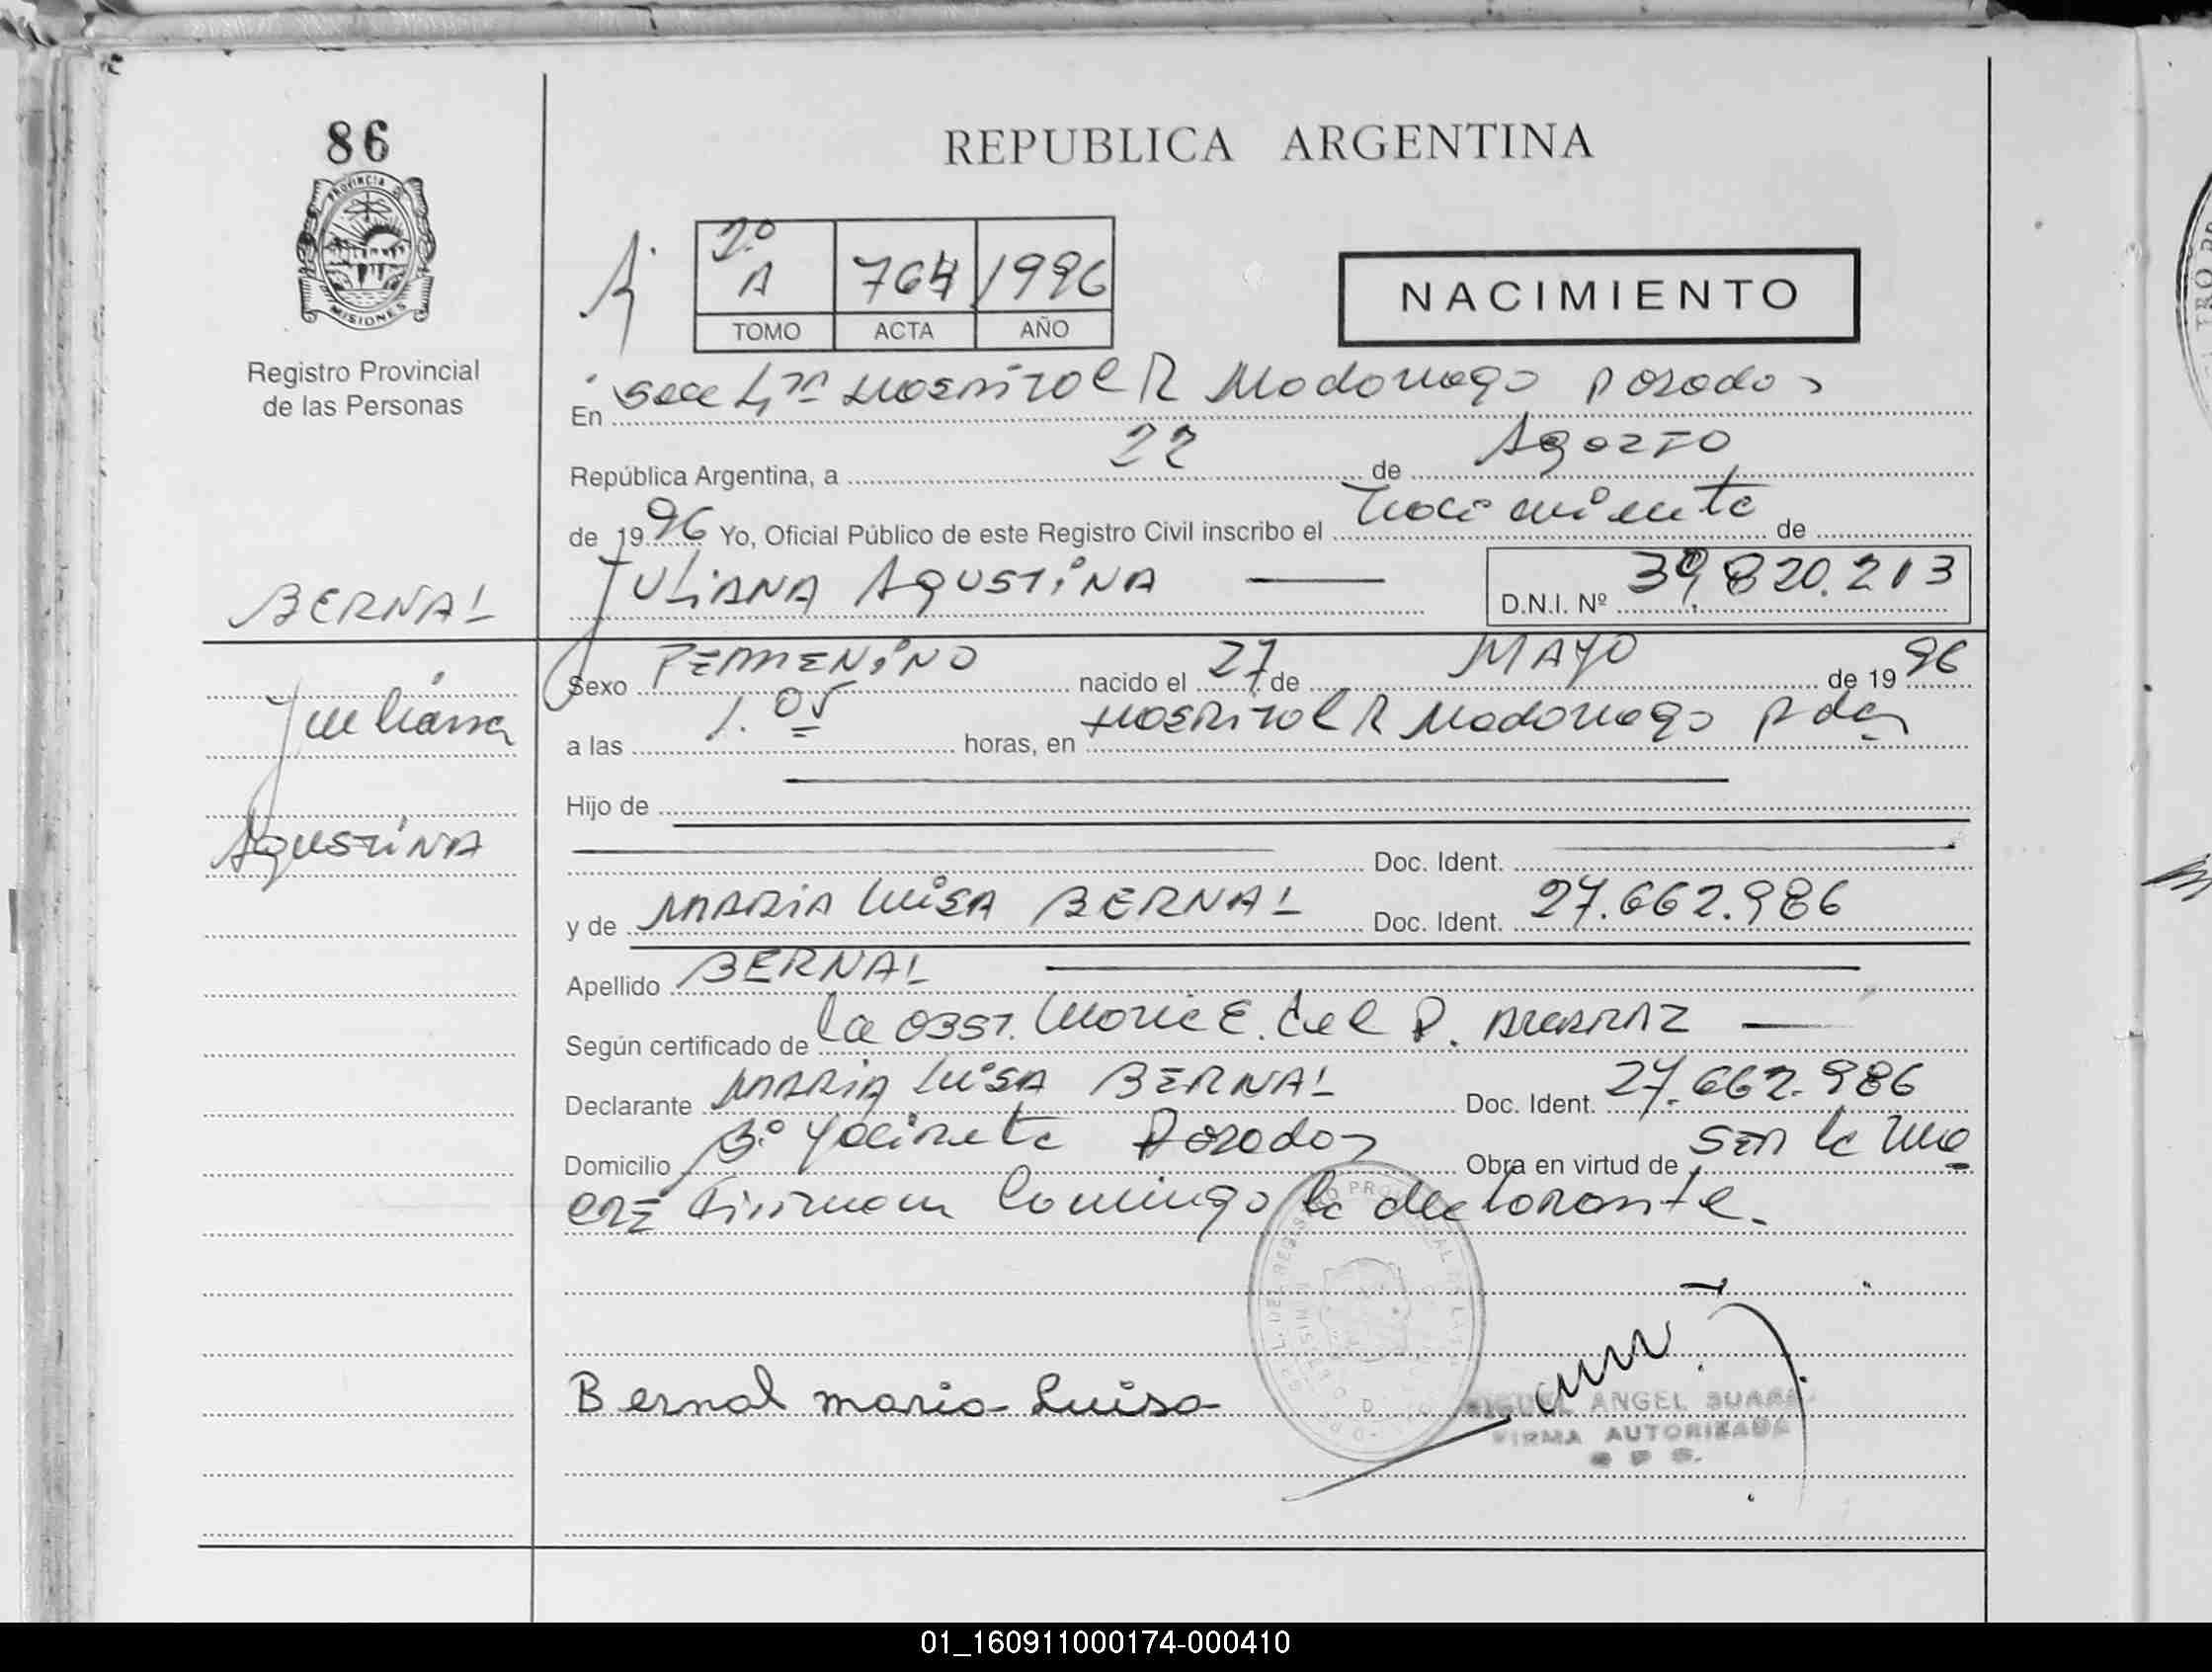 86
PROVINCIA DE
MISIONES
Registro Provincial
de las Personas
REPUBLICA ARGENTINA
2º
A 764 1996
TOMO ACTA AÑO
NACIMIENTO
En Hospital R Madariaga Posadas
República Argentina, a 22 de Agosto
de 1996 Yo, Oficial Público de este Registro Civil inscribo el Nacimiento de
JULIANA AGUSTINA
D.N.I. Nº 39.820.213
BERNAL
Juliana
Agustina
Sexo FEMENINO nacido el 27 de MAYO de 1996
a las 1.05 horas, en Hospital R Madariaga Pdas
Hijo de
Doc. Ident.
y de MARIA LUISA BERNAL Doc. Ident. 27.662.986
Apellido BERNAL
Según certificado de la OBST. Maria E. del P.
Declarante MARIA LUISA BERNAL Doc. Ident. 27.662.986
Domicilio Bº Yacireta Posadas Obra en virtud de SER la Ma
dre Firman Conmigo la declarante.
Bernal maria Luisa
MIGUEL ANGEL SUAREZ
FIRMA AUTORIZADA
01_160911000174-000410